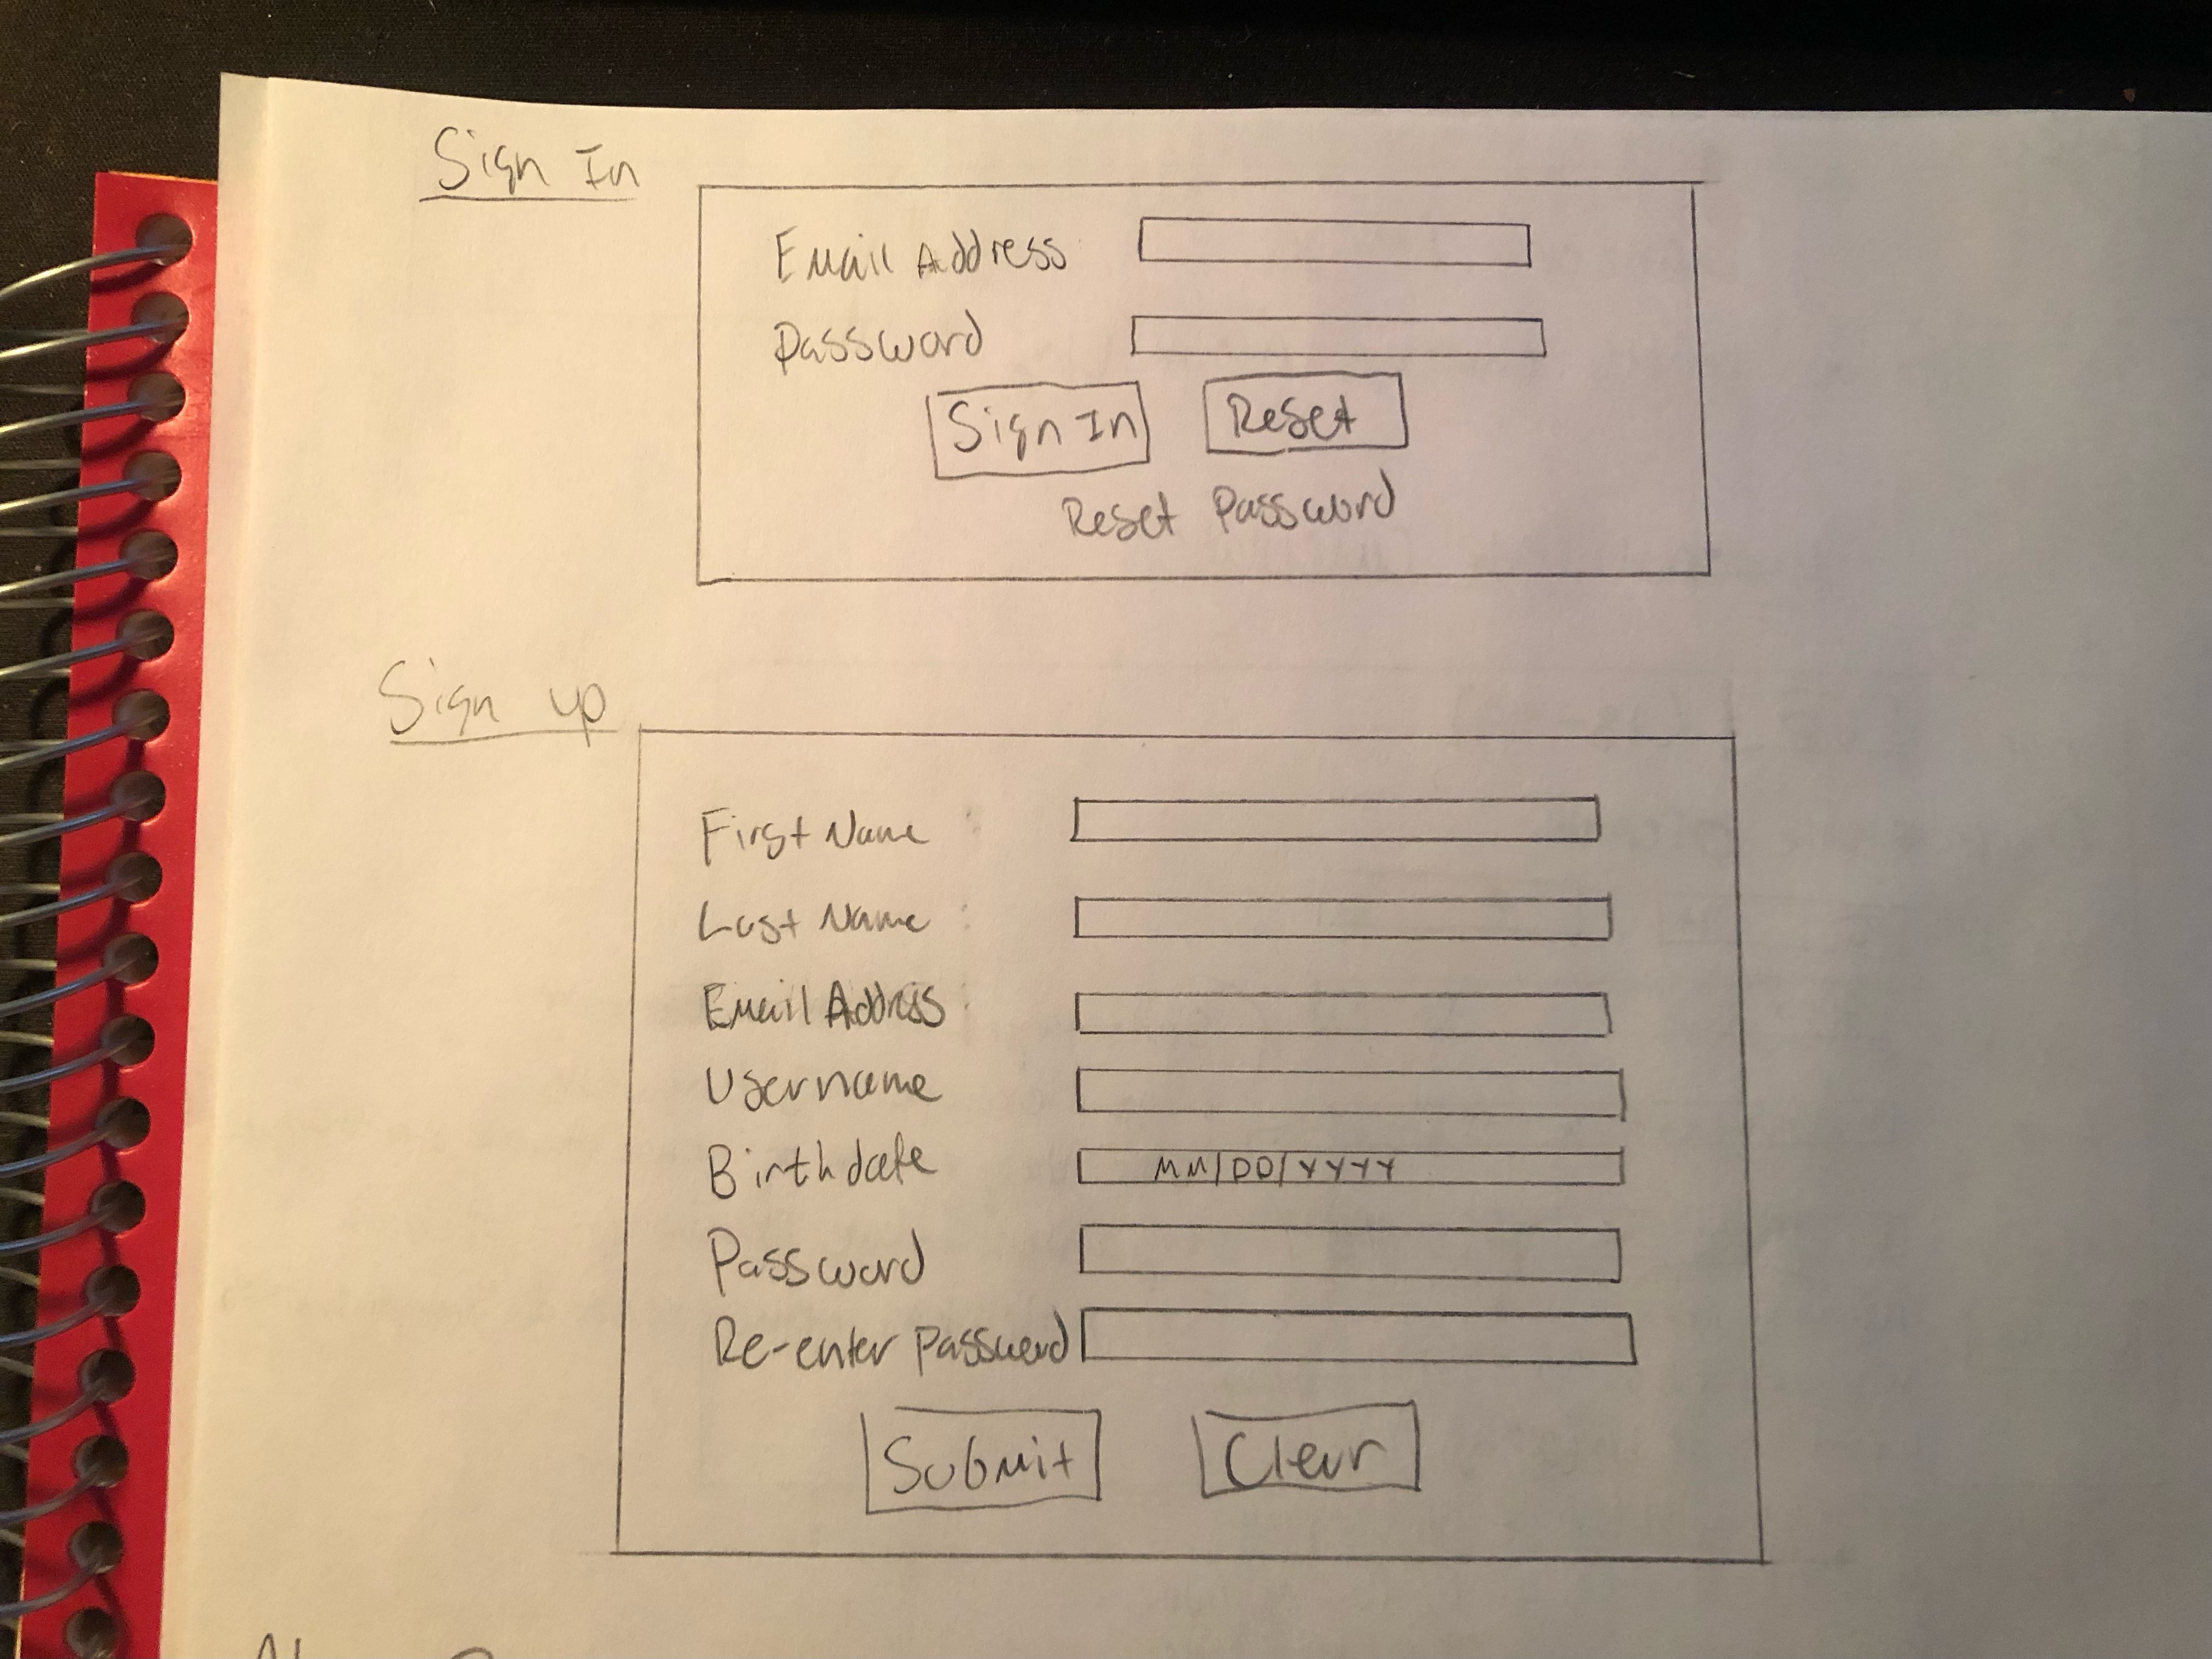 Sign In
Email Address
Password
Sign In Reset
Reset Password
Sign up
First Name :
Last Name :
Email Address :
Username
Birthdate MM/DD/YYYY
Password
Re-enter Password
Submit Clear